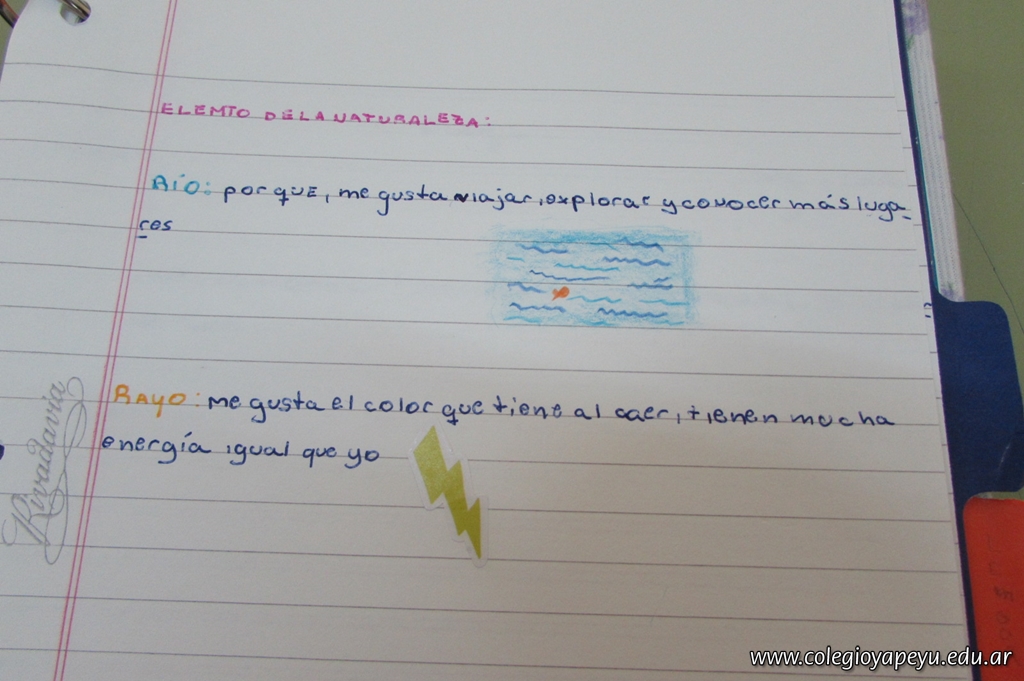 ELEMTO DE LA NATURALEZA:
RÍO: por que, me gusta viajar, explorar y conocer más luga-
res
RAYO: me gusta el color que tiene al caer, tienen mucha
energía igual que yo
Rivadavia
www.colegioyapeyu.edu.ar